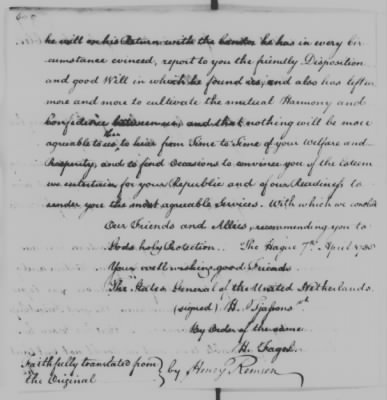 he will on his Return with the Candor he has in every Cir
cumstance evinced, report to you the friendly Disposition
and good Will in which he found us, and also has left us
more and more to cultivate the mutual Harmony and
Confidence between us, and that nothing will be more
agreeable to us than to hear from Time to Time of your Welfare and
Prosperity, and to find Occasions to convince you of the Esteem
we entertain for your Republic and of our Readiness to
render you the most agreeable Services. With which we conclude
Our Friends and Allies, recommending you to
Gods holy Protection. The Hague 7th April 1788
Your well wishing good Friends
The States General of the United Netherlands.
(signed)
By Order of the same
H. Fagel
Faithfully translated from
The Original } by Henry Remsen